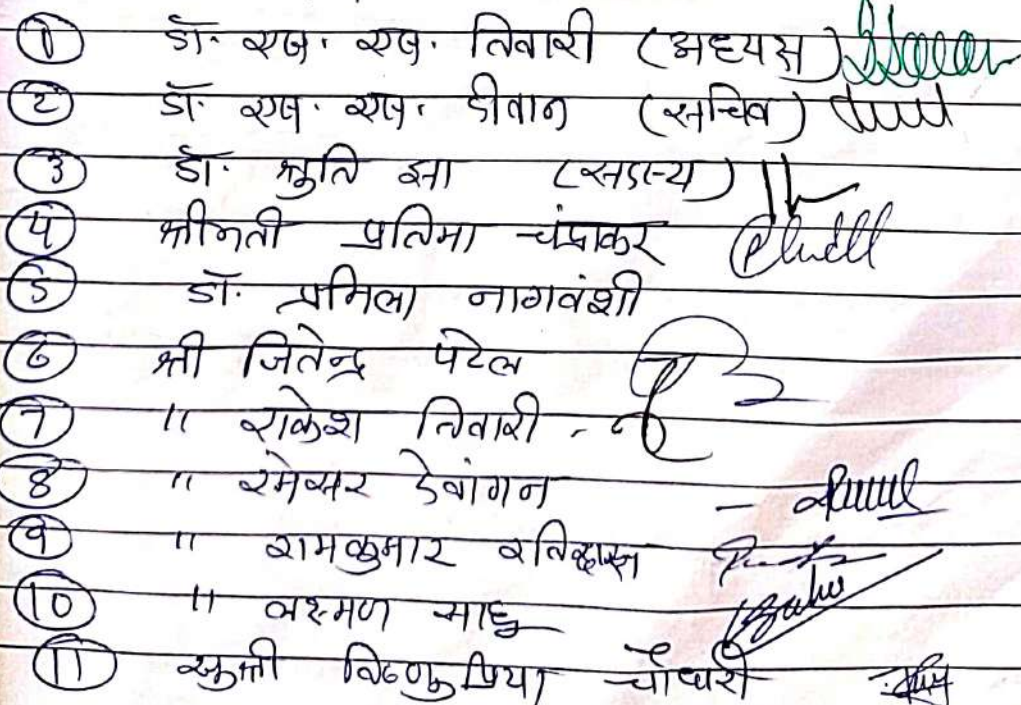 ① डॉ. एज. एज. तिवारी (अध्यक्ष)
② डॉ. एस. एस. दीवान (सचिव)
③ डॉ. श्रुति झा (सदस्य)
④ श्रीमती प्रतिमा चंद्राकर
⑤ डॉ. प्रमिला नागवंशी
⑥ श्री जितेन्द्र पटेल
⑦ " राकेश तिवारी -
⑧ " रमेसर देवांगन -
⑨ " रामकुमार
⑩ " लक्ष्मण साहु Sahu
⑪ सुश्री विष्णु प्रिया चौधरी